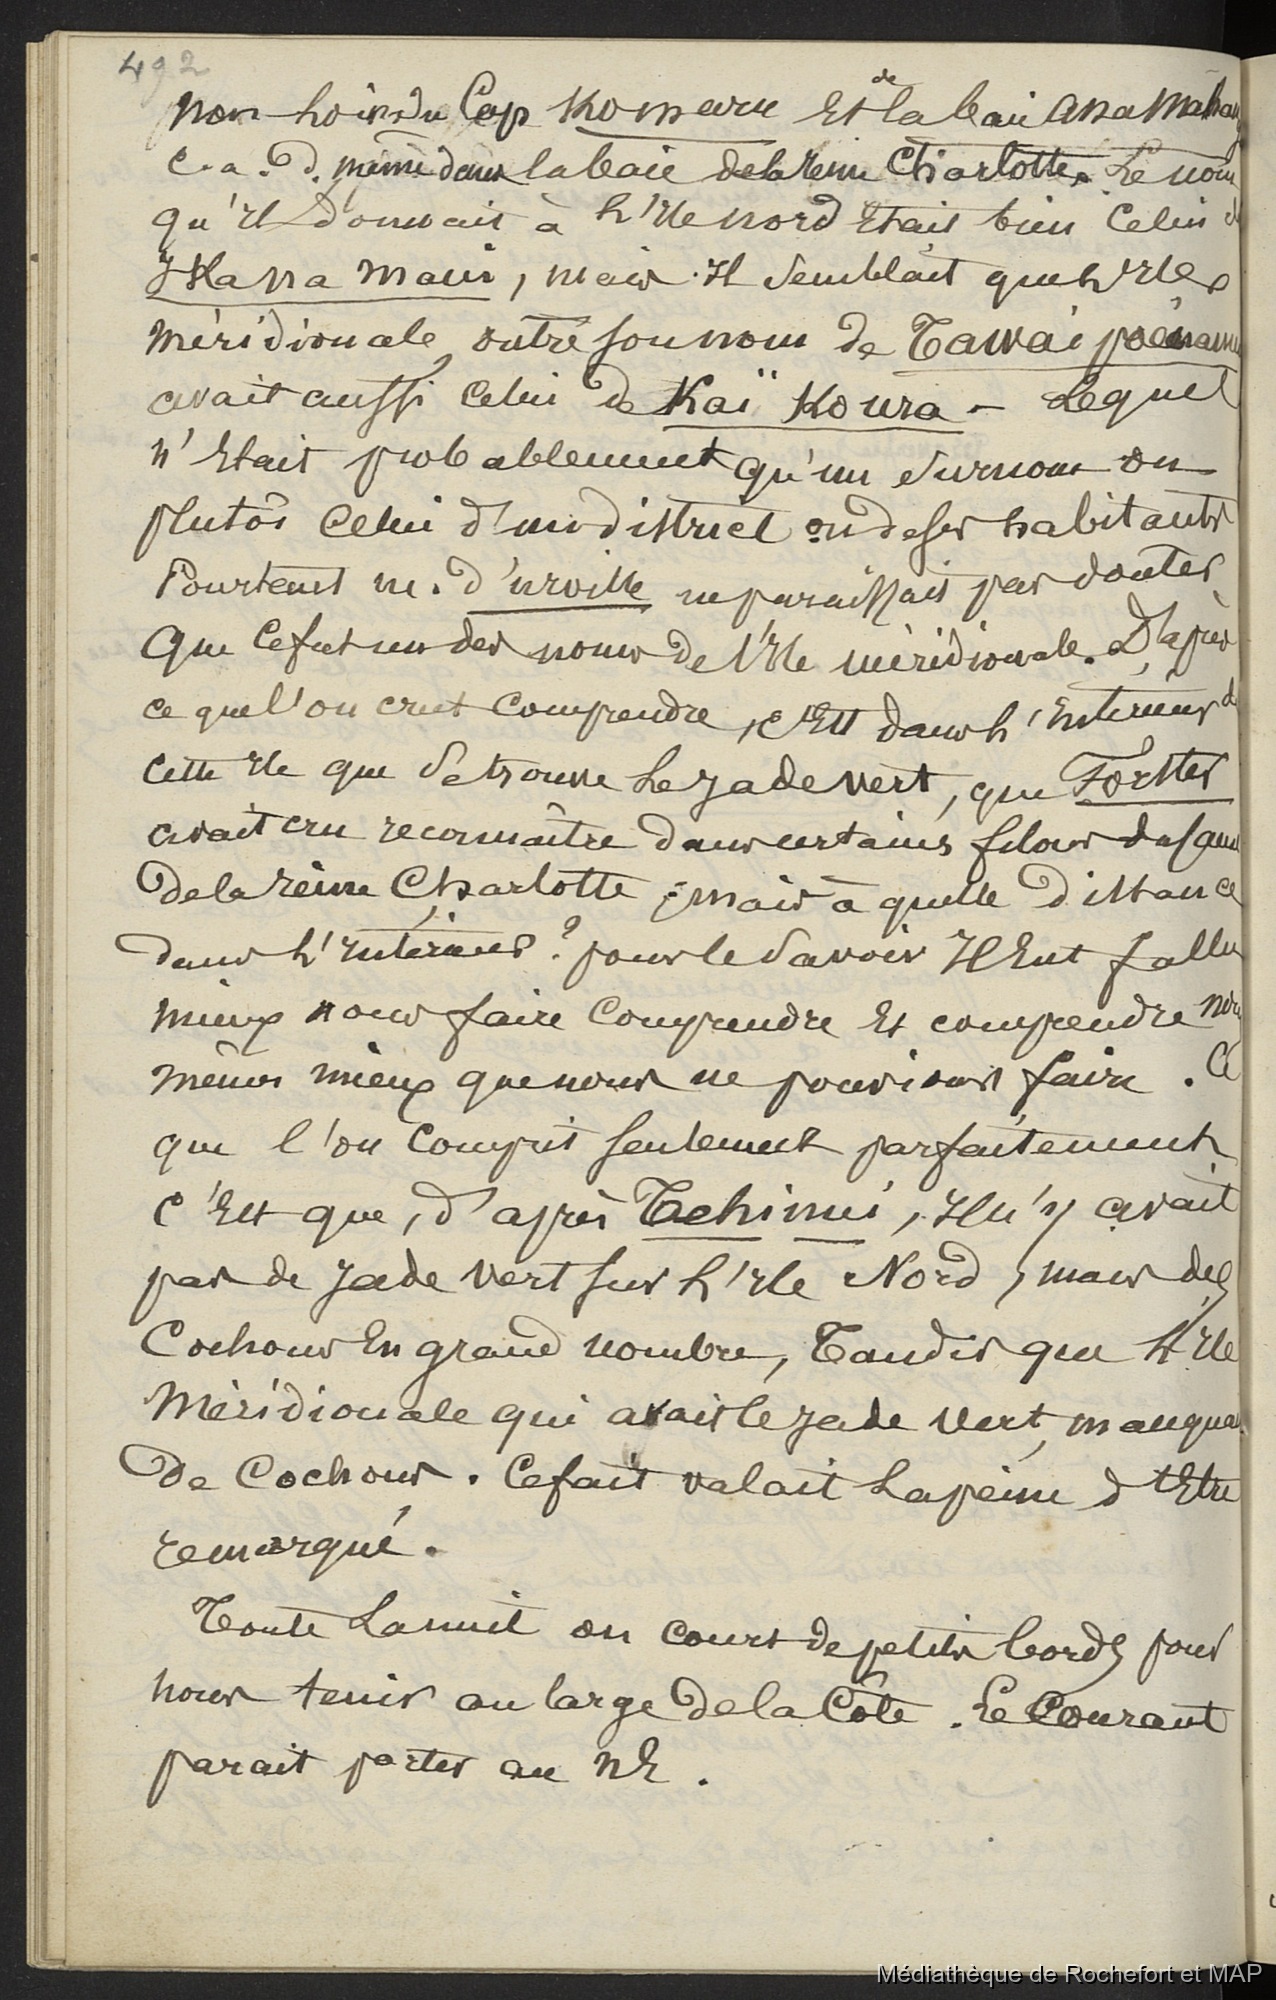 492
non loin du Cap Komaru Et de la baie Ana Mahan
c. a. d. même dans la baie de la reine Charlotte. Le nom
qu'il donnait à l'Ile nord Etait bien Celui de
Ika na Maui, mais Il semblait que l'Ile
Méridionale, outre son nom de Tawai poenamu
avait aussi celui de Kaï Koura – Lequel
n'Etait probablement qu'un surnom ou
plutôt Celui d'un district ou de ses habitants
Pourtant m. d'urville ne paraissait pas douter
que ce fut un des noms de l'Ile méridionale. D'après
ce que l'on crut comprendre, c'Est dans l'Interieur de
cette Ile que se trouve Le jade vert, que Forster
avait cru reconnaître dans certains filons du canal
de la reine Charlotte ; mais à quelle distance
dans l'Intérieur ? pour le savoir Il Eut fallu
mieux nous faire Comprendre Et comprendre nous
mêmes mieux que nous ne pouvions faire. Ce
que l'on Comprit seulement parfaitement
c'Est que, d'après Tehinui, Il n'y avait
pas de jade vert sur l'Ile Nord, mais des
Cochons En grand nombre, Tandis que l'Ile
Méridionale qui avait le jade vert, manquait
de Cochons. Ce fait valait La peine d'Etre
remarqué.
Toute La nuit on court de petits bords pour
nous tenir au large de la Côte. Le Courant
parait porter au NE.
Médiathèque de Rochefort et MAP